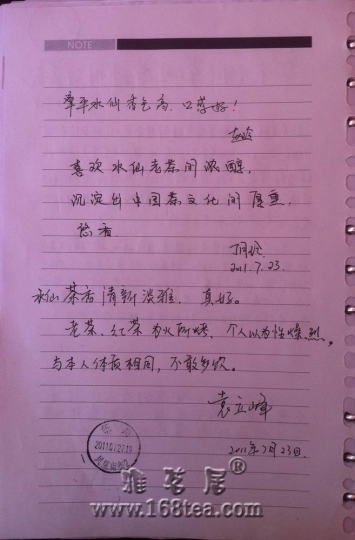 NOTE
水仙香气高，口感好！
喜欢水仙老茶的浓醇，
沉淀的中国茶文化的厚重，
2011.7.23.
水仙茶香清新淡雅，真好。
老茶、红茶为火所烤，个人以为性燥烈，
与本人体质相同，不敢多饮。
袁立峰
2011年7月23日.
雅茗居®
www.168tea.com